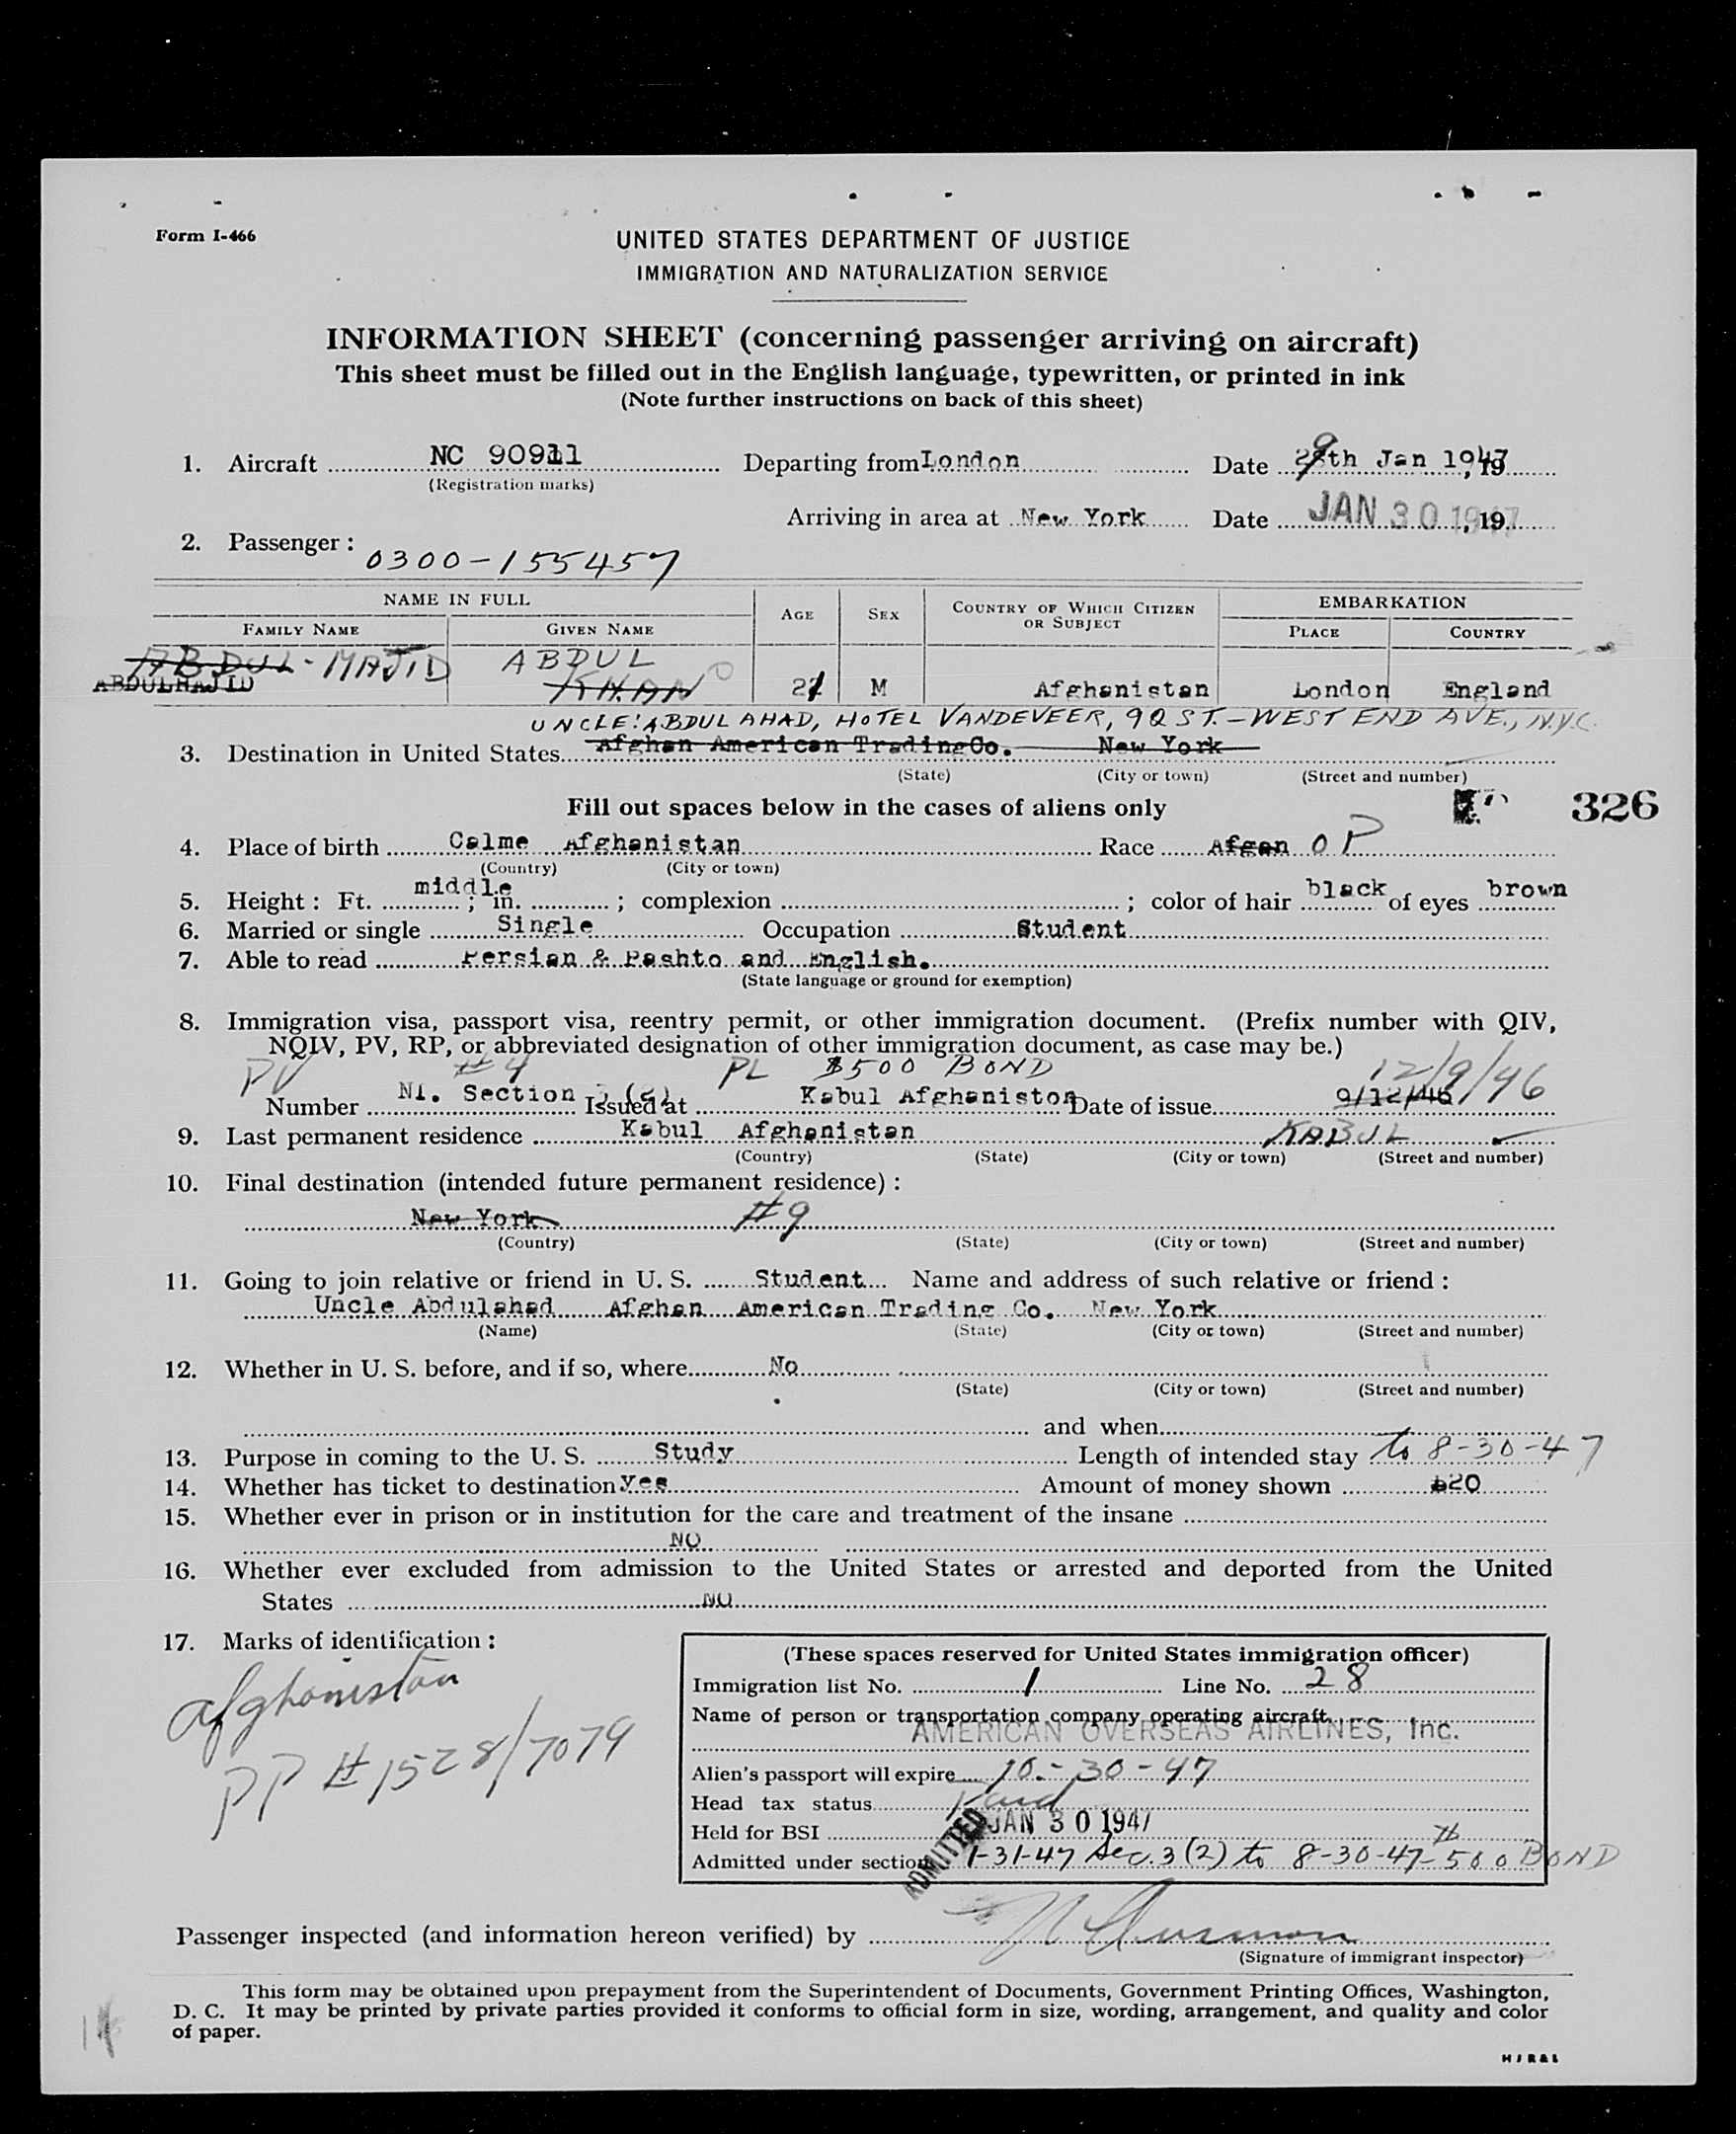 Form I-466
UNITED STATES DEPARTMENT OF JUSTICE
IMMIGRATION AND NATURALIZATION SERVICE
INFORMATION SHEET (concerning passenger arriving on aircraft)
This sheet must be filled out in the English language, typewritten, or printed in ink
(Note further instructions on back of this sheet)
1. Aircraft NC 90911 Departing from London Date 29th Jan 1947, 19
(Registration marks)
Arriving in area at New York Date JAN 30 1947, 19
2. Passenger: 0300-155457
NAME IN FULL AGE SEX COUNTRY OF WHICH CITIZEN OR SUBJECT EMBARKATION
FAMILY NAME GIVEN NAME PLACE COUNTRY
ABDUL-MAJID ABDUL
ABDULMAJID KHAN 21 M Afghanistan London England
UNCLE: ABDUL AHAD, HOTEL VANDEVEER, 92 ST.-WEST END AVE., N.Y.C.
3. Destination in United States Afghan American Trading Co. New York
(State) (City or town) (Street and number)
Fill out spaces below in the cases of aliens only 326
4. Place of birth Calme Afghanistan Race Afgan OP
(Country) (City or town)
5. Height: Ft. middle; in. ; complexion ; color of hair black of eyes brown
6. Married or single Single Occupation Student
7. Able to read Persian & Pashto and English.
(State language or ground for exemption)
8. Immigration visa, passport visa, reentry permit, or other immigration document. (Prefix number with QIV,
NQIV, PV, RP, or abbreviated designation of other immigration document, as case may be.)
PV #4 PL $500 BOND 12/9/46
Number Section Issued at Kabul Afghaniston Date of issue 9/12/46
9. Last permanent residence Kabul Afghanistan KABUL
(Country) (State) (City or town) (Street and number)
10. Final destination (intended future permanent residence):
New York #9
(Country) (State) (City or town) (Street and number)
11. Going to join relative or friend in U. S. Student Name and address of such relative or friend:
Uncle Abdulahad Afghan American Trading Co. New York
(Name) (State) (City or town) (Street and number)
12. Whether in U. S. before, and if so, where No
(State) (City or town) (Street and number)
and when
13. Purpose in coming to the U. S. Study Length of intended stay to 8-30-47
14. Whether has ticket to destination Yes Amount of money shown $20
15. Whether ever in prison or in institution for the care and treatment of the insane
NO
16. Whether ever excluded from admission to the United States or arrested and deported from the United
States NO
17. Marks of identification:
Afghanistan
PP #1528/7079
(These spaces reserved for United States immigration officer)
Immigration list No. 1 Line No. 28
Name of person or transportation company operating aircraft
AMERICAN OVERSEAS AIRLINES, Inc.
Alien's passport will expire 10-30-47
Head tax status Paid
Held for BSI JAN 30 1947
Admitted under section 1-31-47 Sec. 3(2) to 8-30-47-500 BOND
ADMITTED
Passenger inspected (and information hereon verified) by
(Signature of immigrant inspector)
This form may be obtained upon prepayment from the Superintendent of Documents, Government Printing Offices, Washington,
D. C. It may be printed by private parties provided it conforms to official form in size, wording, arrangement, and quality and color
of paper.